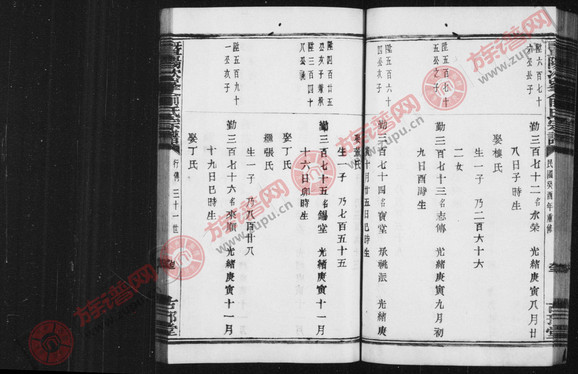 民國癸酉年重修
陞六百七十
六公子
勤三百七十二名永榮 光緒庚寅八月廿
八日子時生
娶樓氏
生一子 乃二百六十六
二女
陞五百七十
四公之子
勤三百七十三名志傳 光緒庚寅九月初
九日酉時生
陞五百六十
五公次子
勤三百七十四名寶堂 承祧派 光緒庚
寅十月廿五日巳時生
氏
生一子 乃七百五十五
陞四百廿五
陞三百四十
勤三百七十五名錫堂 光緒庚寅十一月
十六日卯時生
娶丁氏
繼張氏
生一子 乃八百廿八
陞五百九十
一公次子
勤三百七十六名來順 光緒庚寅十一月
十九日巳時生
娶丁氏
行傳 三十一世
族谱网
zupu.cn